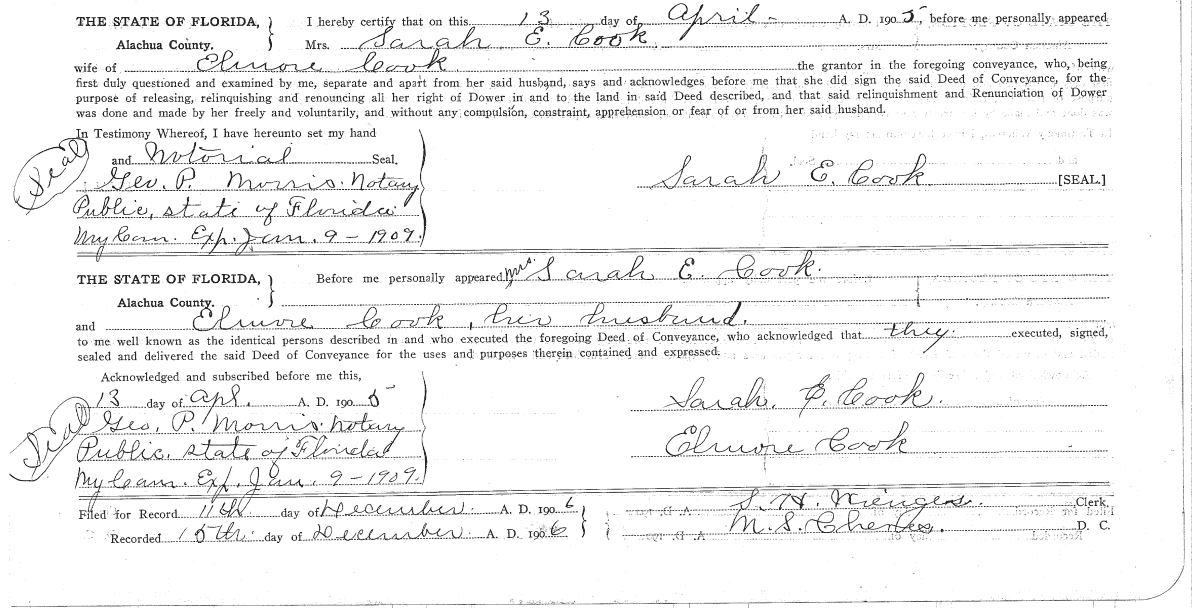 THE STATE OF FLORIDA, } I hereby certify that on this 13 day of April - A. D. 1905, before me personally appeared
Alachua County. Mrs. Sarah E. Cook.
wife of Elmore Cook. the grantor in the foregoing conveyance, who, being
first duly questioned and examined by me, separate and apart from her said husband, says and acknowledges before me that she did sign the said Deed of Conveyance, for the
purpose of releasing, relinquishing and renouncing all her right of Dower in and to the land in said Deed described, and that said relinquishment and Renunciation of Dower
was done and made by her freely and voluntarily, and without any compulsion, constraint, apprehension or fear of or from her said husband.
In Testimony Whereof, I have hereunto set my hand
Seal and Notorial Seal.
Geo. P. Morris. Notary Sarah E. Cook [SEAL.]
Public, state of Florida
My Com. Exp. Jan. 9 - 1909.
THE STATE OF FLORIDA, } Before me personally appeared Mrs. Sarah E. Cook.
Alachua County.
and Elmore Cook, her husband.
to me well known as the identical persons described in and who executed the foregoing Deed of Conveyance, who acknowledged that they executed, signed,
sealed and delivered the said Deed of Conveyance for the uses and purposes therein contained and expressed.
Acknowledged and subscribed before me this,
13 day of Apl. A. D. 1905 Sarah. E. Cook.
Seal Geo. P. Morris. Notary
Public, state of Florida Elmore Cook
My Com. Exp. Jan. 9 - 1909.
Filed for Record 11th day of December. A. D. 1906 } S. H. Wienges. Clerk.
Recorded 15th day of December A. D. 1906 M. S. D. C.